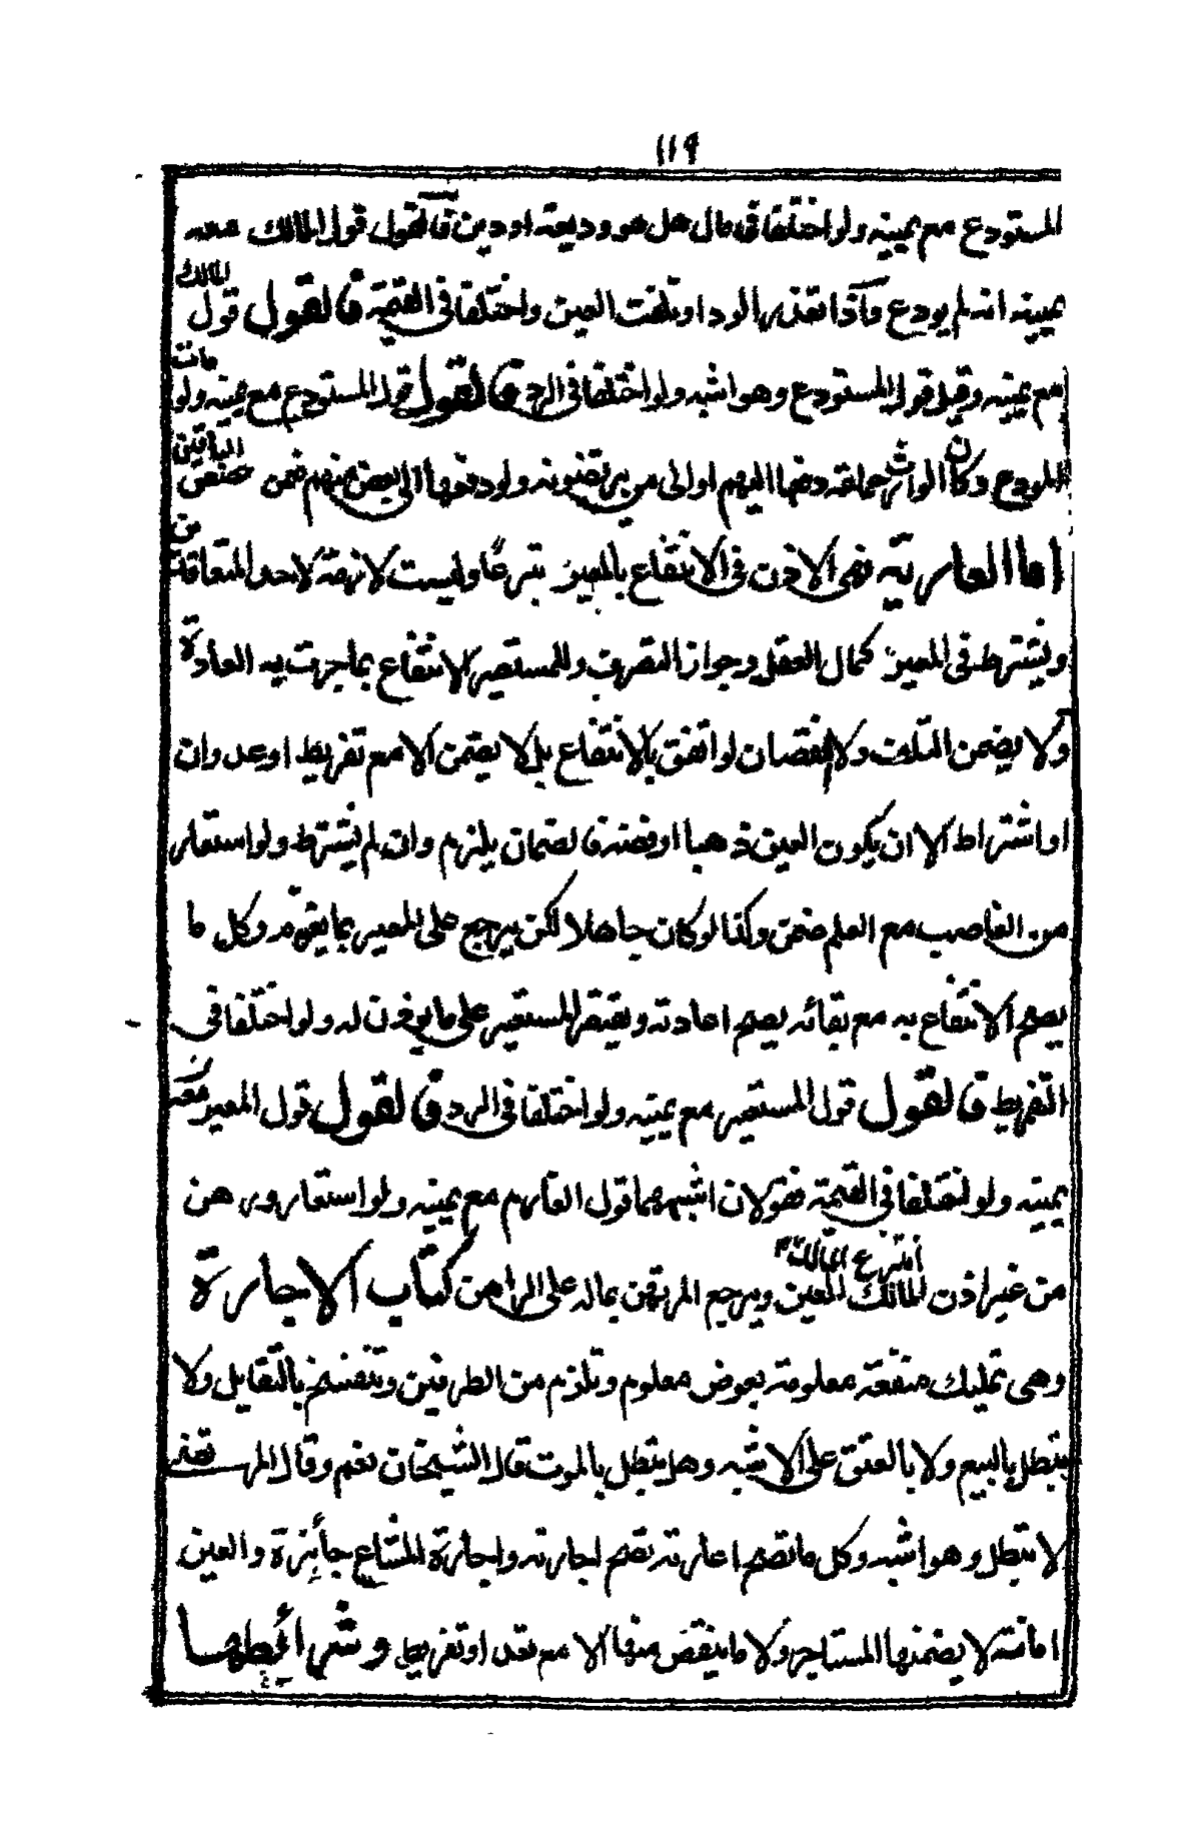 ١١٩
المستودع مع يمينه ولو اختلفا في مال هل هو وديعة او دين فالقول قول المالك مع
يمينه انه لم يودع واذا تعذر الرد او تلفت العين واختلفا في القيمة فالقول قول المالك
مع يمينه وقيل قول المستودع وهو اشبه ولو اختلفا في الرد فالقول قول المستودع مع يمينه ولو مات
المودع وكان الوارث جماعة دفعها اليهم او الى من يرتضونه ولو دفعها الى بعض منهم ضمن حصص الباقين
اما العارية فهى الاذن في الانتفاع بالعين تبرعا وليست لازمة لاحد المتعاقدين
ويشترط في المعير كمال العقل وجواز التصرف وللمستعير الانتفاع بما جرت به العادة
ولا يضمن التلف ولا النقصان لو اتفق بالانتفاع بل لا يضمن الا مع تفريط او عدوان
او اشتراط الا ان يكون العين ذهبا او فضة فالضمان يلزم وان لم يشترط ولو استعار
من الغاصب مع العلم ضمن وكذا لو كان جاهلا لكن يرجع على المعير بما يغرمه وكل ما
يصح الانتفاع به مع بقائه يصح اعادته ويقتصر المستعير على ما يوذن له ولو اختلفا في
التفريط فالقول قول المستعير مع يمينه ولو اختلفا في الرد فالقول قول المعير مع
يمينه ولو اختلفا في القيمة فقولان اشبههما قول الغارم مع يمينه ولو استعار ورهن
من غير اذن المالك انتزع المالك العين ويرجع المرتهن بماله على الراهن كتاب الاجارة
وهى تمليك منفعة معلومة بعوض معلوم وتلزم من الطرفين وتنفسخ بالتقايل ولا
تبطل بالبيع ولا بالعتق على الاشبه وهل تبطل بالموت قال الشيخان نعم وقال المرتضى
لا تبطل وهو اشبه وكل ما تصح اعارته تصح اجارته واجارة المشاع جائزة والعين
امانة لا يضمنها المستاجر ولا ما ينقص منها الا مع تعد او تفريط وشرائطها